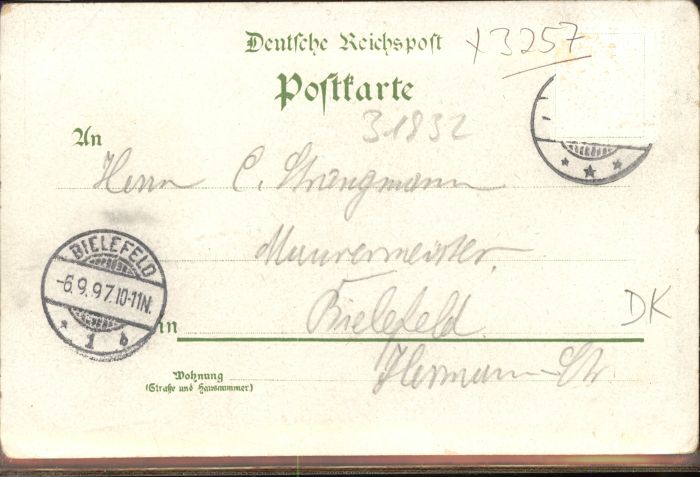 Deutsche Reichspost
x 3257
Postkarte
31832
An
Herrn C. Strangmann
Maurermeister.
BIELEFELD
-6.9.97.10-11N.
* 1 b
Bielefeld.
DK
in
Hermann-Str
Wohnung
(Straße und Hausnummer)